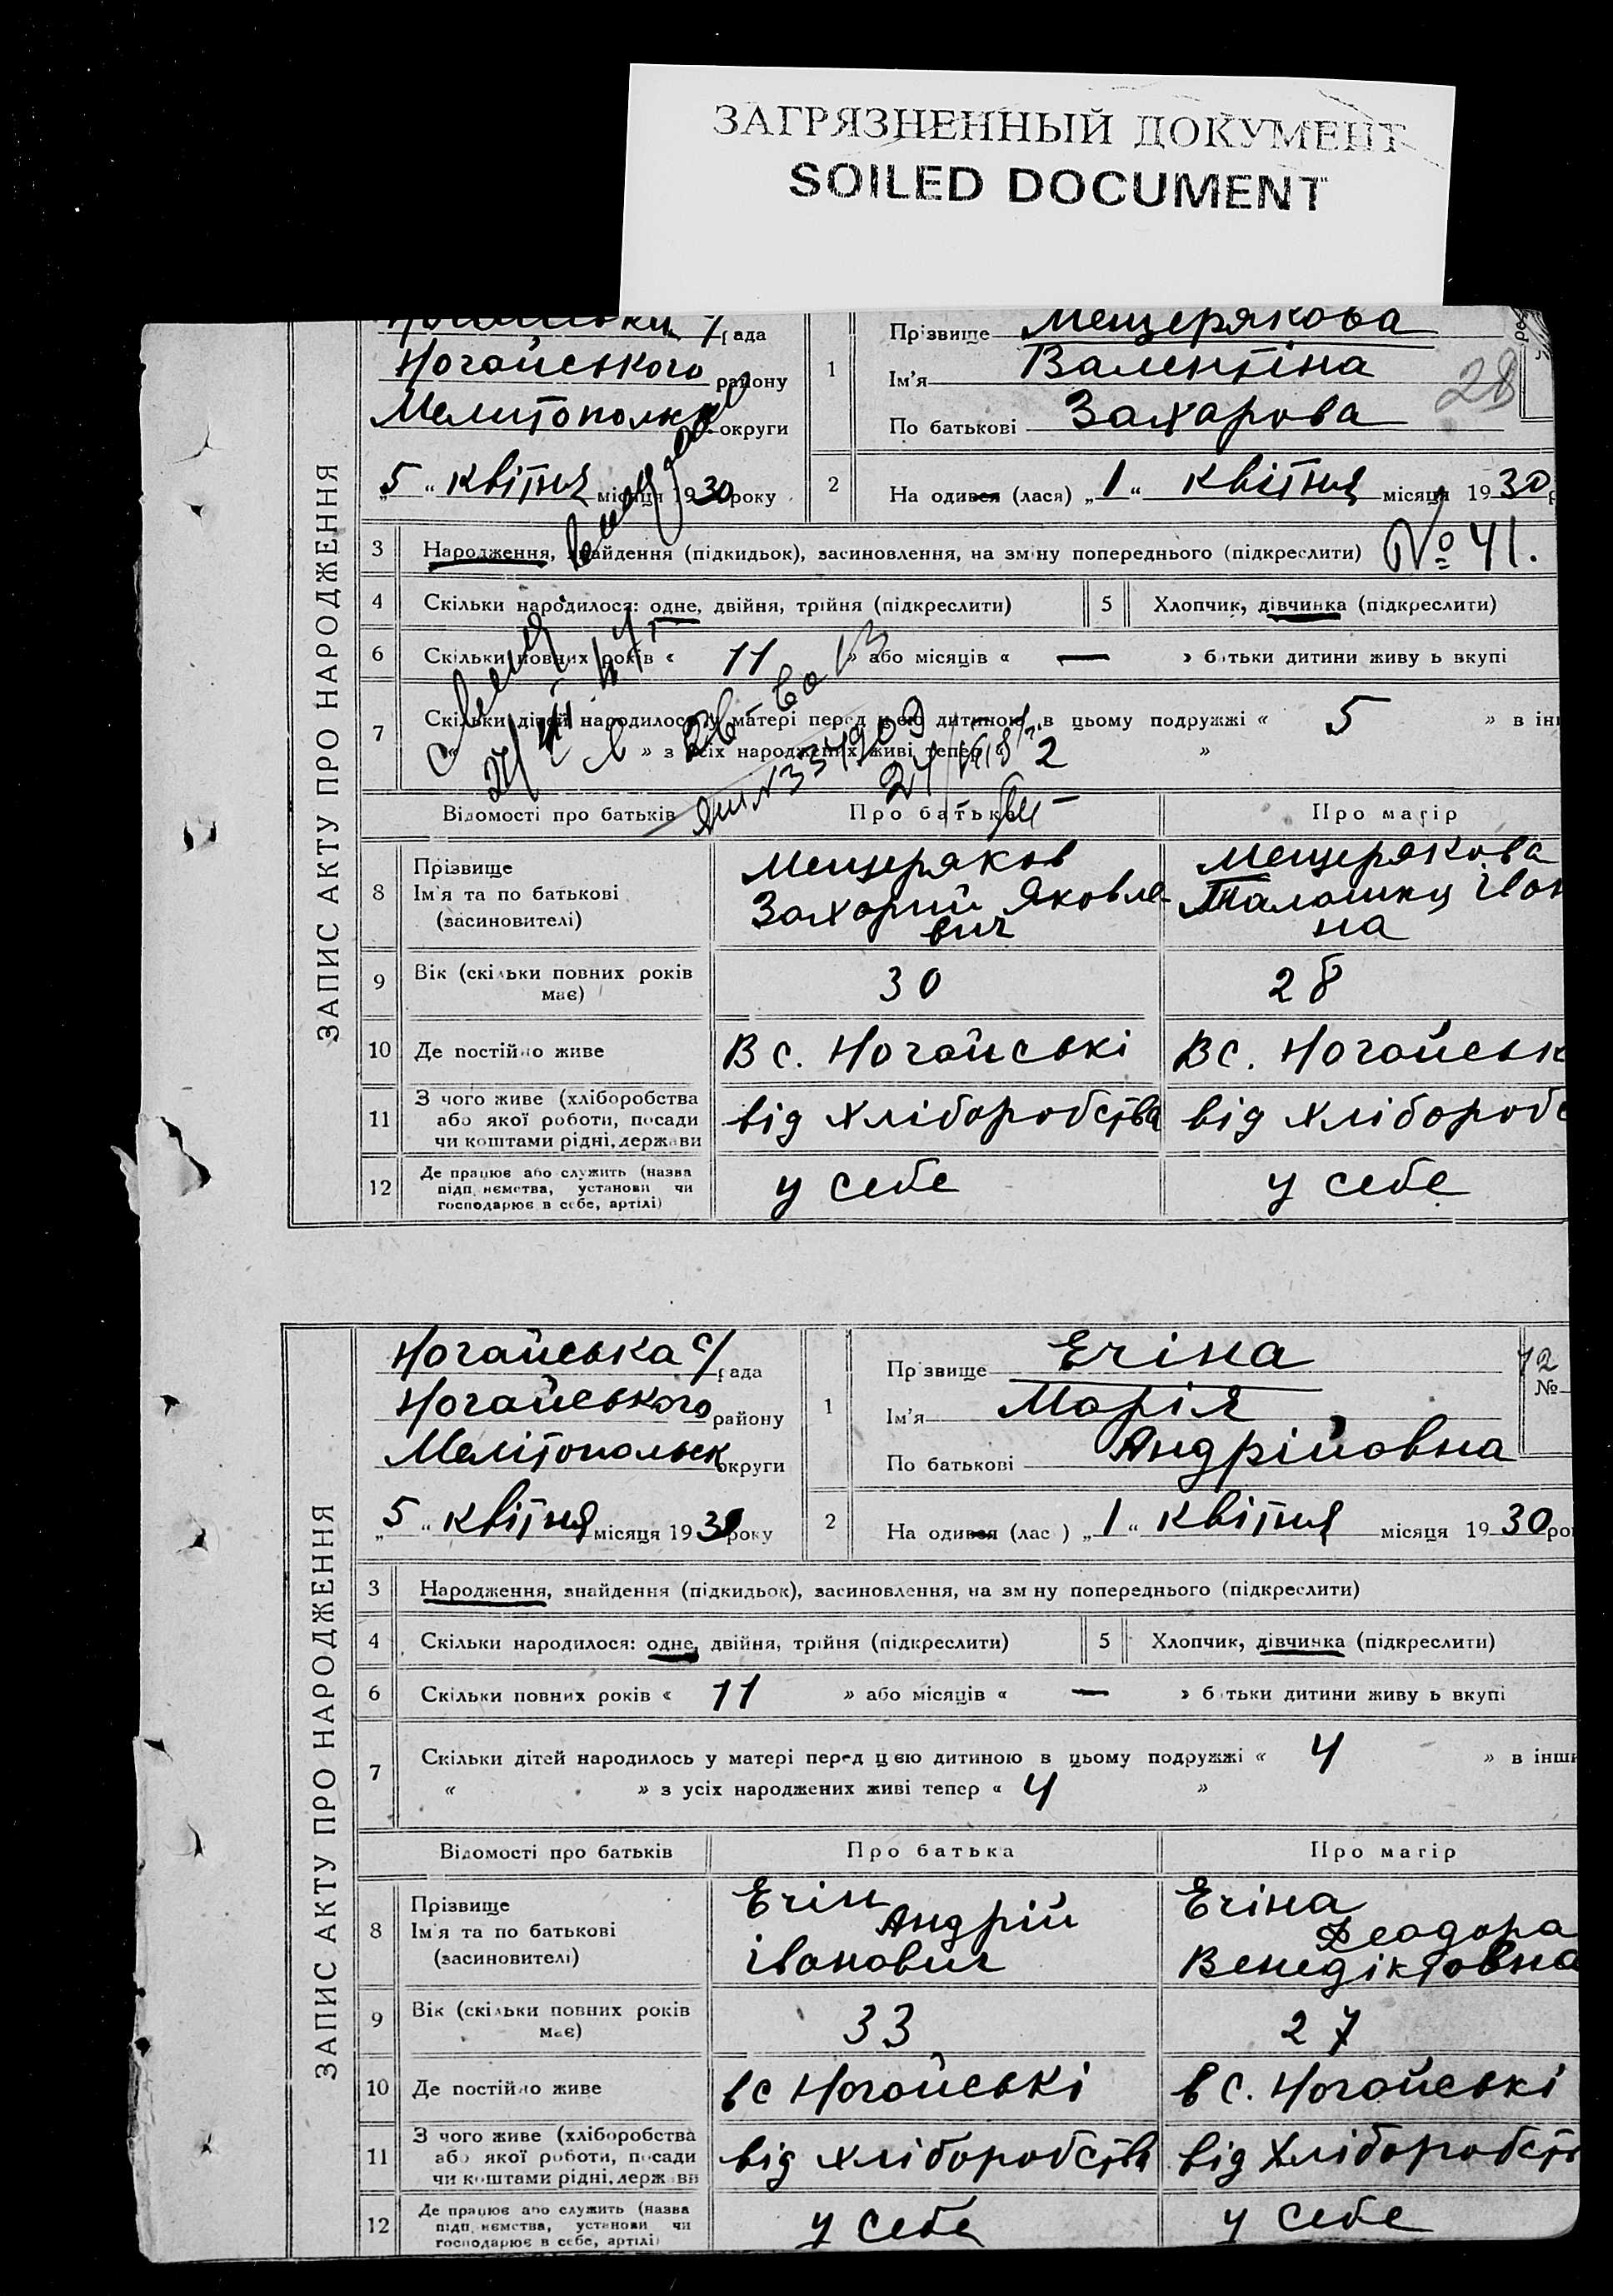 ЗАГРЯЗНЕННЫЙ ДОКУМЕНТ
SOILED DOCUMENT
ЗАПИС АКТУ ПРО НАРОДЖЕННЯ
рада
Ногайського району
округи
„5“ квітня місяця 1930 року
1
Прізвище Мещерякова
Ім'я Валентіна
По батькові Захарова
28
2
На одився (лася) „1“ квітня місяця 1930 р
3 Народження, знайдення (підкидьок), засиновлення, на зміну попереднього (підкреслити) № 41.
4 Скільки народилося: одне, двійня, трійня (підкреслити)
5 Хлопчик, дівчинка (підкреслити)
6 Скільки повних років « 11 » або місяців « — » батьки дитини живу ь вкупі
7 Скільки дітей народилось у матері перед цією дитиною в цьому подружжі « 5 » в ін
» з усіх народжених живі тепер « 2 »
Відомості про батьків Про батька Про матір
8 Прізвище
Ім'я та по батькові
(засиновителі)
Мещеряков
Захарий Яковле-
вич
Мещерякова
Іван
на
9 Вік (скільки повних років
має)
30
28
10 Де постійно живе
В с. Ногайські
В с. Ногайськ
11 З чого живе (хліборобства
або якої роботи, посади
чи коштами рідні, держави
від хліборобства
від хлібороб
12 Де працює або служить (назва
підп иємства, установи чи
господарює в себе, артілі)
у себе
у себе
ЗАПИС АКТУ ПРО НАРОДЖЕННЯ
Ногайська с/рада
Ногайського району
Мелітопольськ округи
„5“ квітня місяця 1930 року
1
Пр звище Ечіна
Ім'я Марія
По батькові Андрійовна
42
№
2
На одився (лас ) „1“ квітня місяця 1930 ро
3 Народження, знайдення (підкидьок), засиновлення, на зм ну попереднього (підкреслити)
4 Скільки народилося: одне, двійня, трійня (підкреслити)
5 Хлопчик, дівчинка (підкреслити)
6 Скільки повних років « 11 » або місяців « — » б тьки дитини живу ь вкупі
7 Скільки дітей народилось у матері перед ц єю дитиною в цьому подружжі « 4 » в інши
« » з усіх народжених живі тепер « 4 »
Відомості про батьків Про батька Про матір
8 Прізвище
Ім'я та по батькові
(засиновителі)
Ечін
Андрій
Іванович
Ечіна
Феодора
Венедіктовна
9 Вік (скільки повних років
має)
33
27
10 Де постійно живе
в с Ногайські
в с. Ногайські
11 З чого живе (хліборобства
або якої роботи, посади
чи коштами рідні, держ ви
від хліборобства
від хліборобств
12 Де працює або служить (назва
підп иємства, установи чи
господарює в себе, артілі)
у себе
у себе